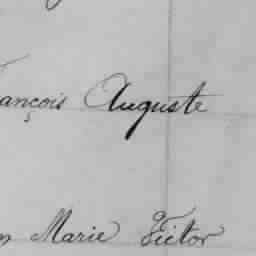 ançois Auguste
Marie Victor